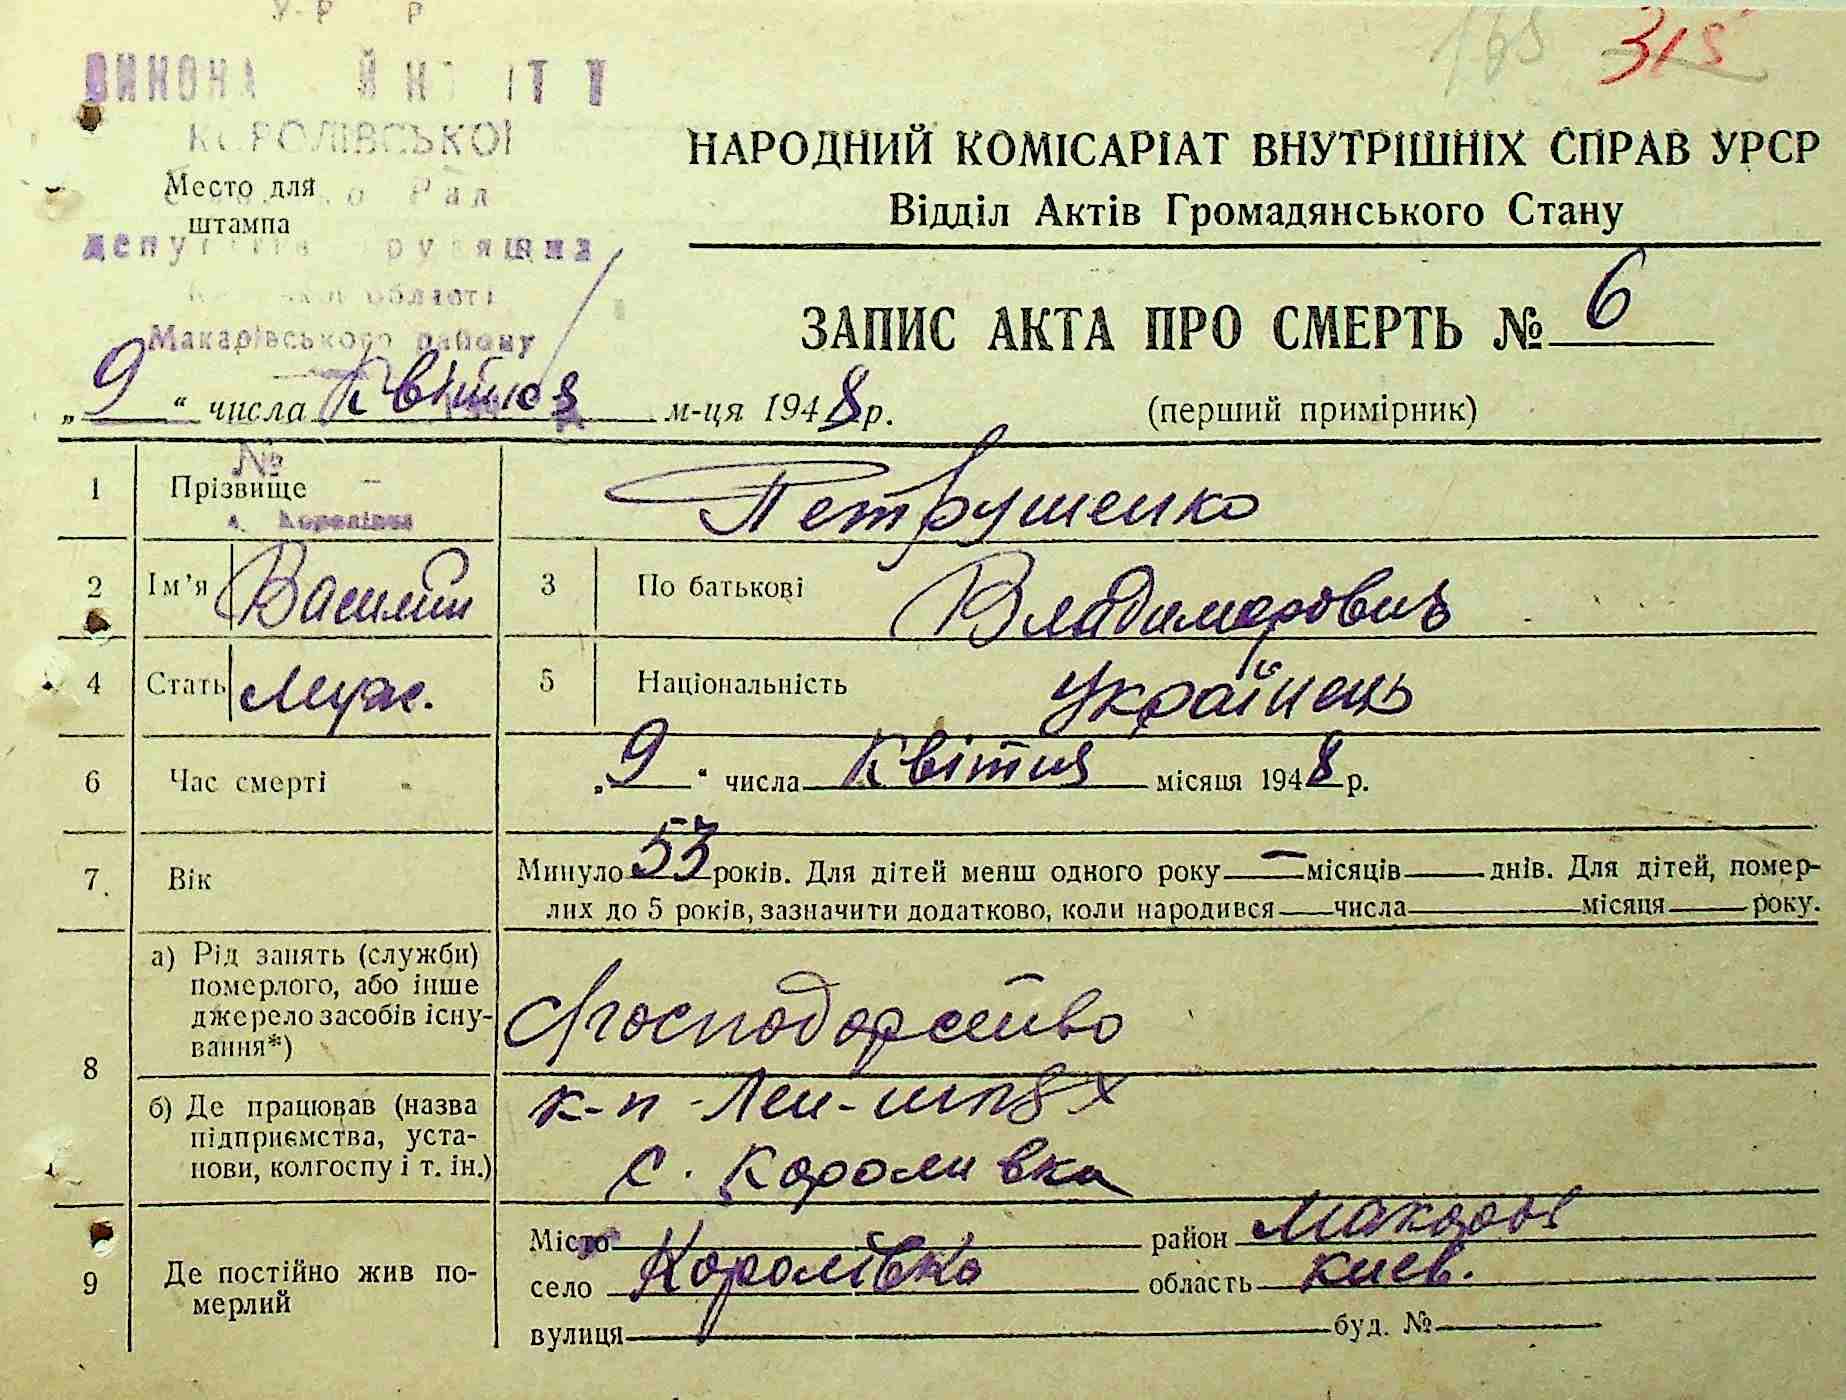 165 315
КОРОЛІВСЬКОЇ
Место для
штампа
НАРОДНИЙ КОМІСАРІАТ ВНУТРІШНІХ СПРАВ УРСР
Відділ Актів Громадянського Стану
області
Макарівського району
ЗАПИС АКТА ПРО СМЕРТЬ № 6
„9“ числа Квітня м-ця 1948 р. (перший примірник)
№
1 Прізвище Петрушенко
2 Ім’я Василий 3 По батькові Владимирович
4 Стать муж. 5 Національність українець
6 Час смерті „9“ числа Квітня місяця 1948 р.
7 Вік Минуло 53 років. Для дітей менш одного року — місяців днів. Для дітей, помер-
лих до 5 років, зазначити додатково, коли народився числа місяця року.
8 а) Рід занять (служби)
померлого, або інше
джерело засобів існу-
вання*) с/господарство
б) Де працював (назва
підприємства, уста-
нови, колгоспу і т. ін.) к-п Лен-шлях
с. Короливка
9 Де постійно жив по-
мерлий
Місто район Макаров
село Королівка область Киев.
вулиця буд. №